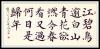 江碧鳥
逾白山
青花欲
燃今春
看又過
何日是
歸年